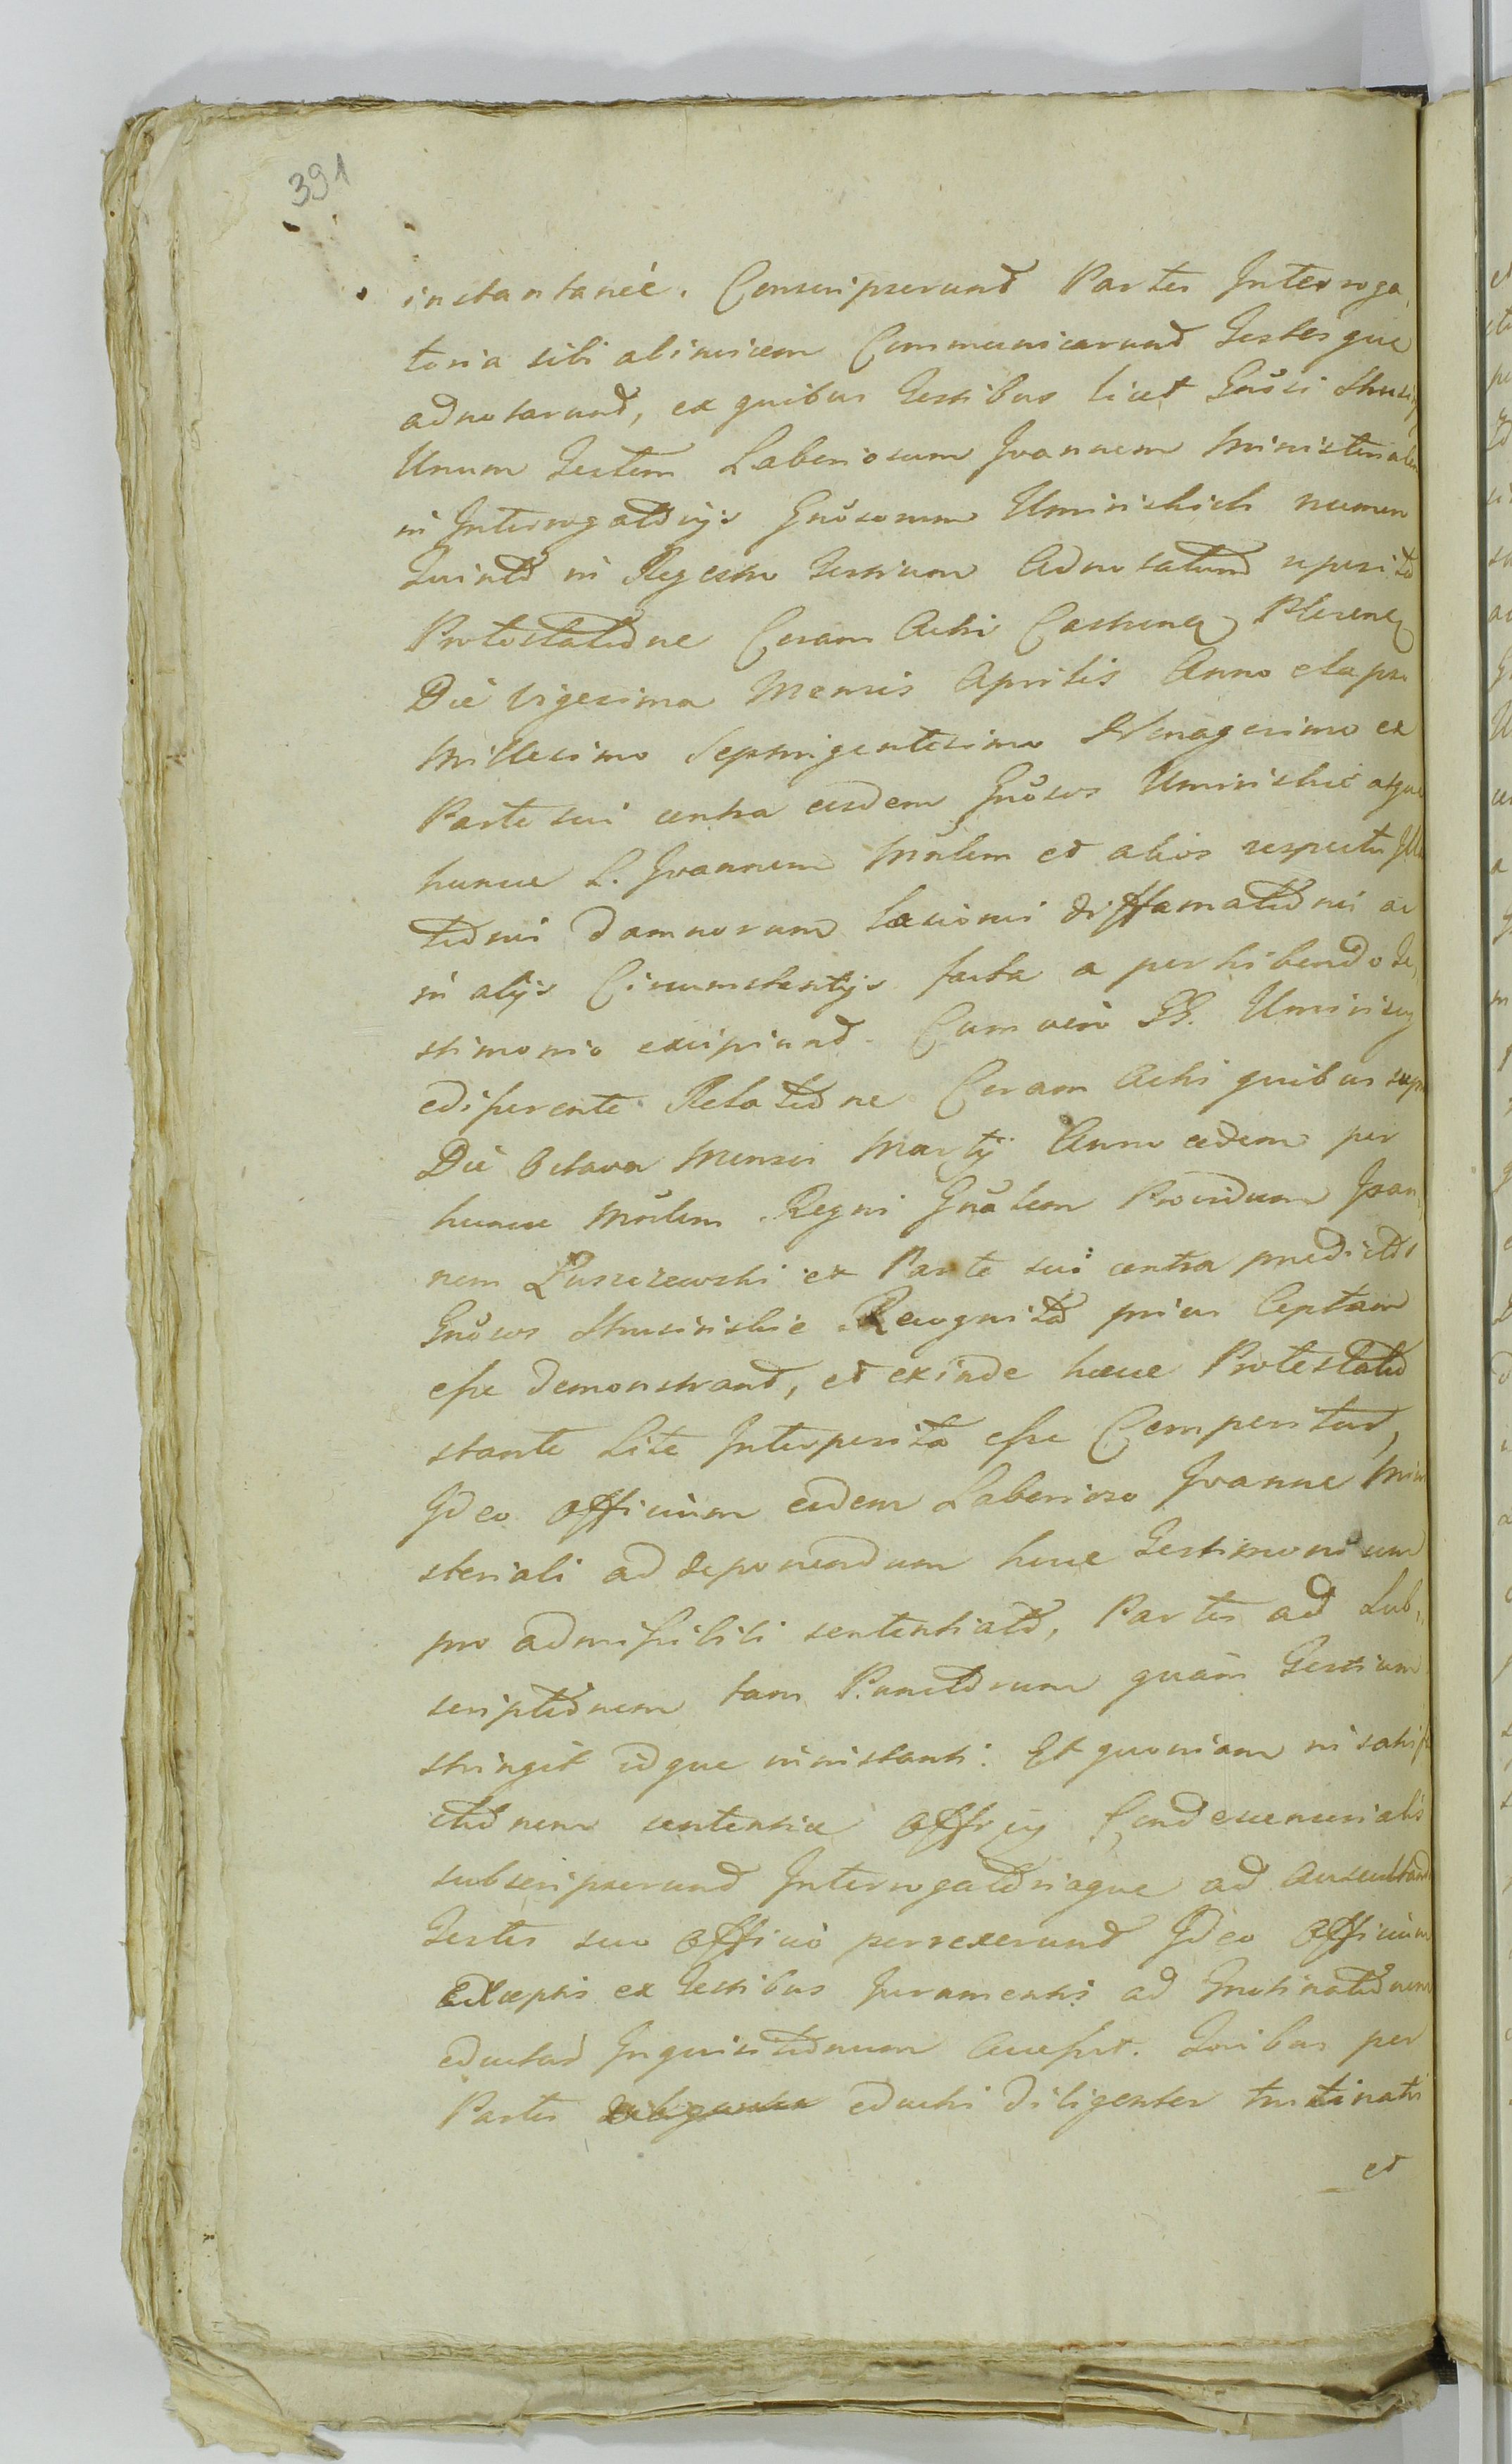 391
instantaneè. Conscripserunt Partes Interroga,
toria sibi abinvicem Communicarunt Testesque
adnotarunt, ex quibus Testibus licet Gnosi
Unum Testem Laboriosum Joannem Ministerialem
in Interrogatoryis Gnosorum Uminskich numero
Quinto in Regestro Testium Adnotatum reposita
Protestatione Coram Actis Castrens
Die vigesima Mensis Aprilis Anno elapso
Millesimo Septingentesimo Nonagesimo ex
Parte sui contra eosdem Gnosos Uminskie atque
huncce L. Joannem Mnlem et alios respectu Illa
tionis damnorum laesionis diffamationis ac
in alijs Circumstantijs facta a perhibendo Te,
stimonio excipiunt. Cum vero GG. Uminscy
edisserente Relatione Coram Actis quibus supra
Die Octava Mensis Martij Anno eodem per
huncce Mnlem Regni Gnalem Providum Joan,
nem Luszczewski ex Parte sui contra praedictos
Gnosos Recognita prius Ceptam
esse demonstrant, et exinde hacce Protestatio
stante Lite Interposita esse Comperitur,
Ideo Officium eidem Laborioso Joanne Mini
steriali ad deponendum hocce Testimonium
pro admissibili sententiato, Partes ad Sub,
scriptionem tam Punctorum quàm Testium
stringit idque ininstanti. Et quoniam in satisfa
ctionem sententiae Officij Condescensorialis
subscripserunt Interrogatoriaque ad Auscultandos
Testes suo Officio porrexerunt Ideo Officium
exceptis ex Testibus Juramentis ad
eductas Inquisitionum Accessit. Quibus per
Partes eductis diligenter trutinatis
et